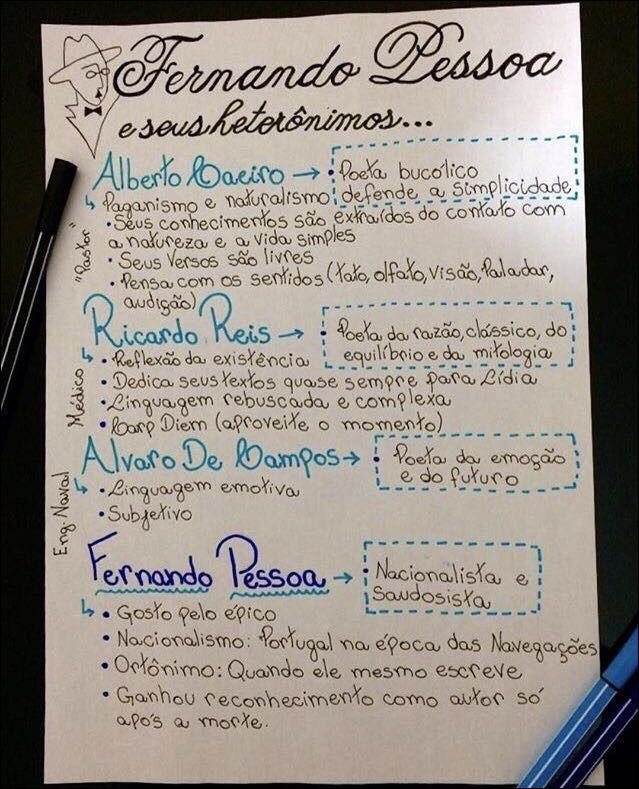 Fernando Pessoa
e seus heterônimos...
Alberto Caeiro → • Poeta bucólico
defende a simplicidade
↳ Paganismo e naturalismo
• Seus conhecimentos são extraídos do contato com
a natureza e a vida simples
• Seus versos são livres
• Pensa com os sentidos (tato, olfato, visão, paladar,
audição)
"Pastor"
Ricardo Reis → • Poeta da razão, clássico, do
equilíbrio e da mitologia
↳ • Reflexão da existência
• Dedica seus textos quase sempre para Lídia
• Linguagem rebuscada e complexa
• Carp Diem (aproveite o momento)
Médico
Alvaro De Campos → • Poeta da emoção
e do futuro
↳ • Linguagem emotiva
• Subjetivo
Eng. Naval
Fernando Pessoa → • Nacionalista e
Saudosista
↳ • Gosto pelo épico
• Nacionalismo: Portugal na época das Navegações
• Ortônimo: Quando ele mesmo escreve
• Ganhou reconhecimento como autor só
após a morte.